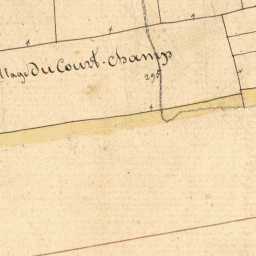 llage Du Court-champ
295